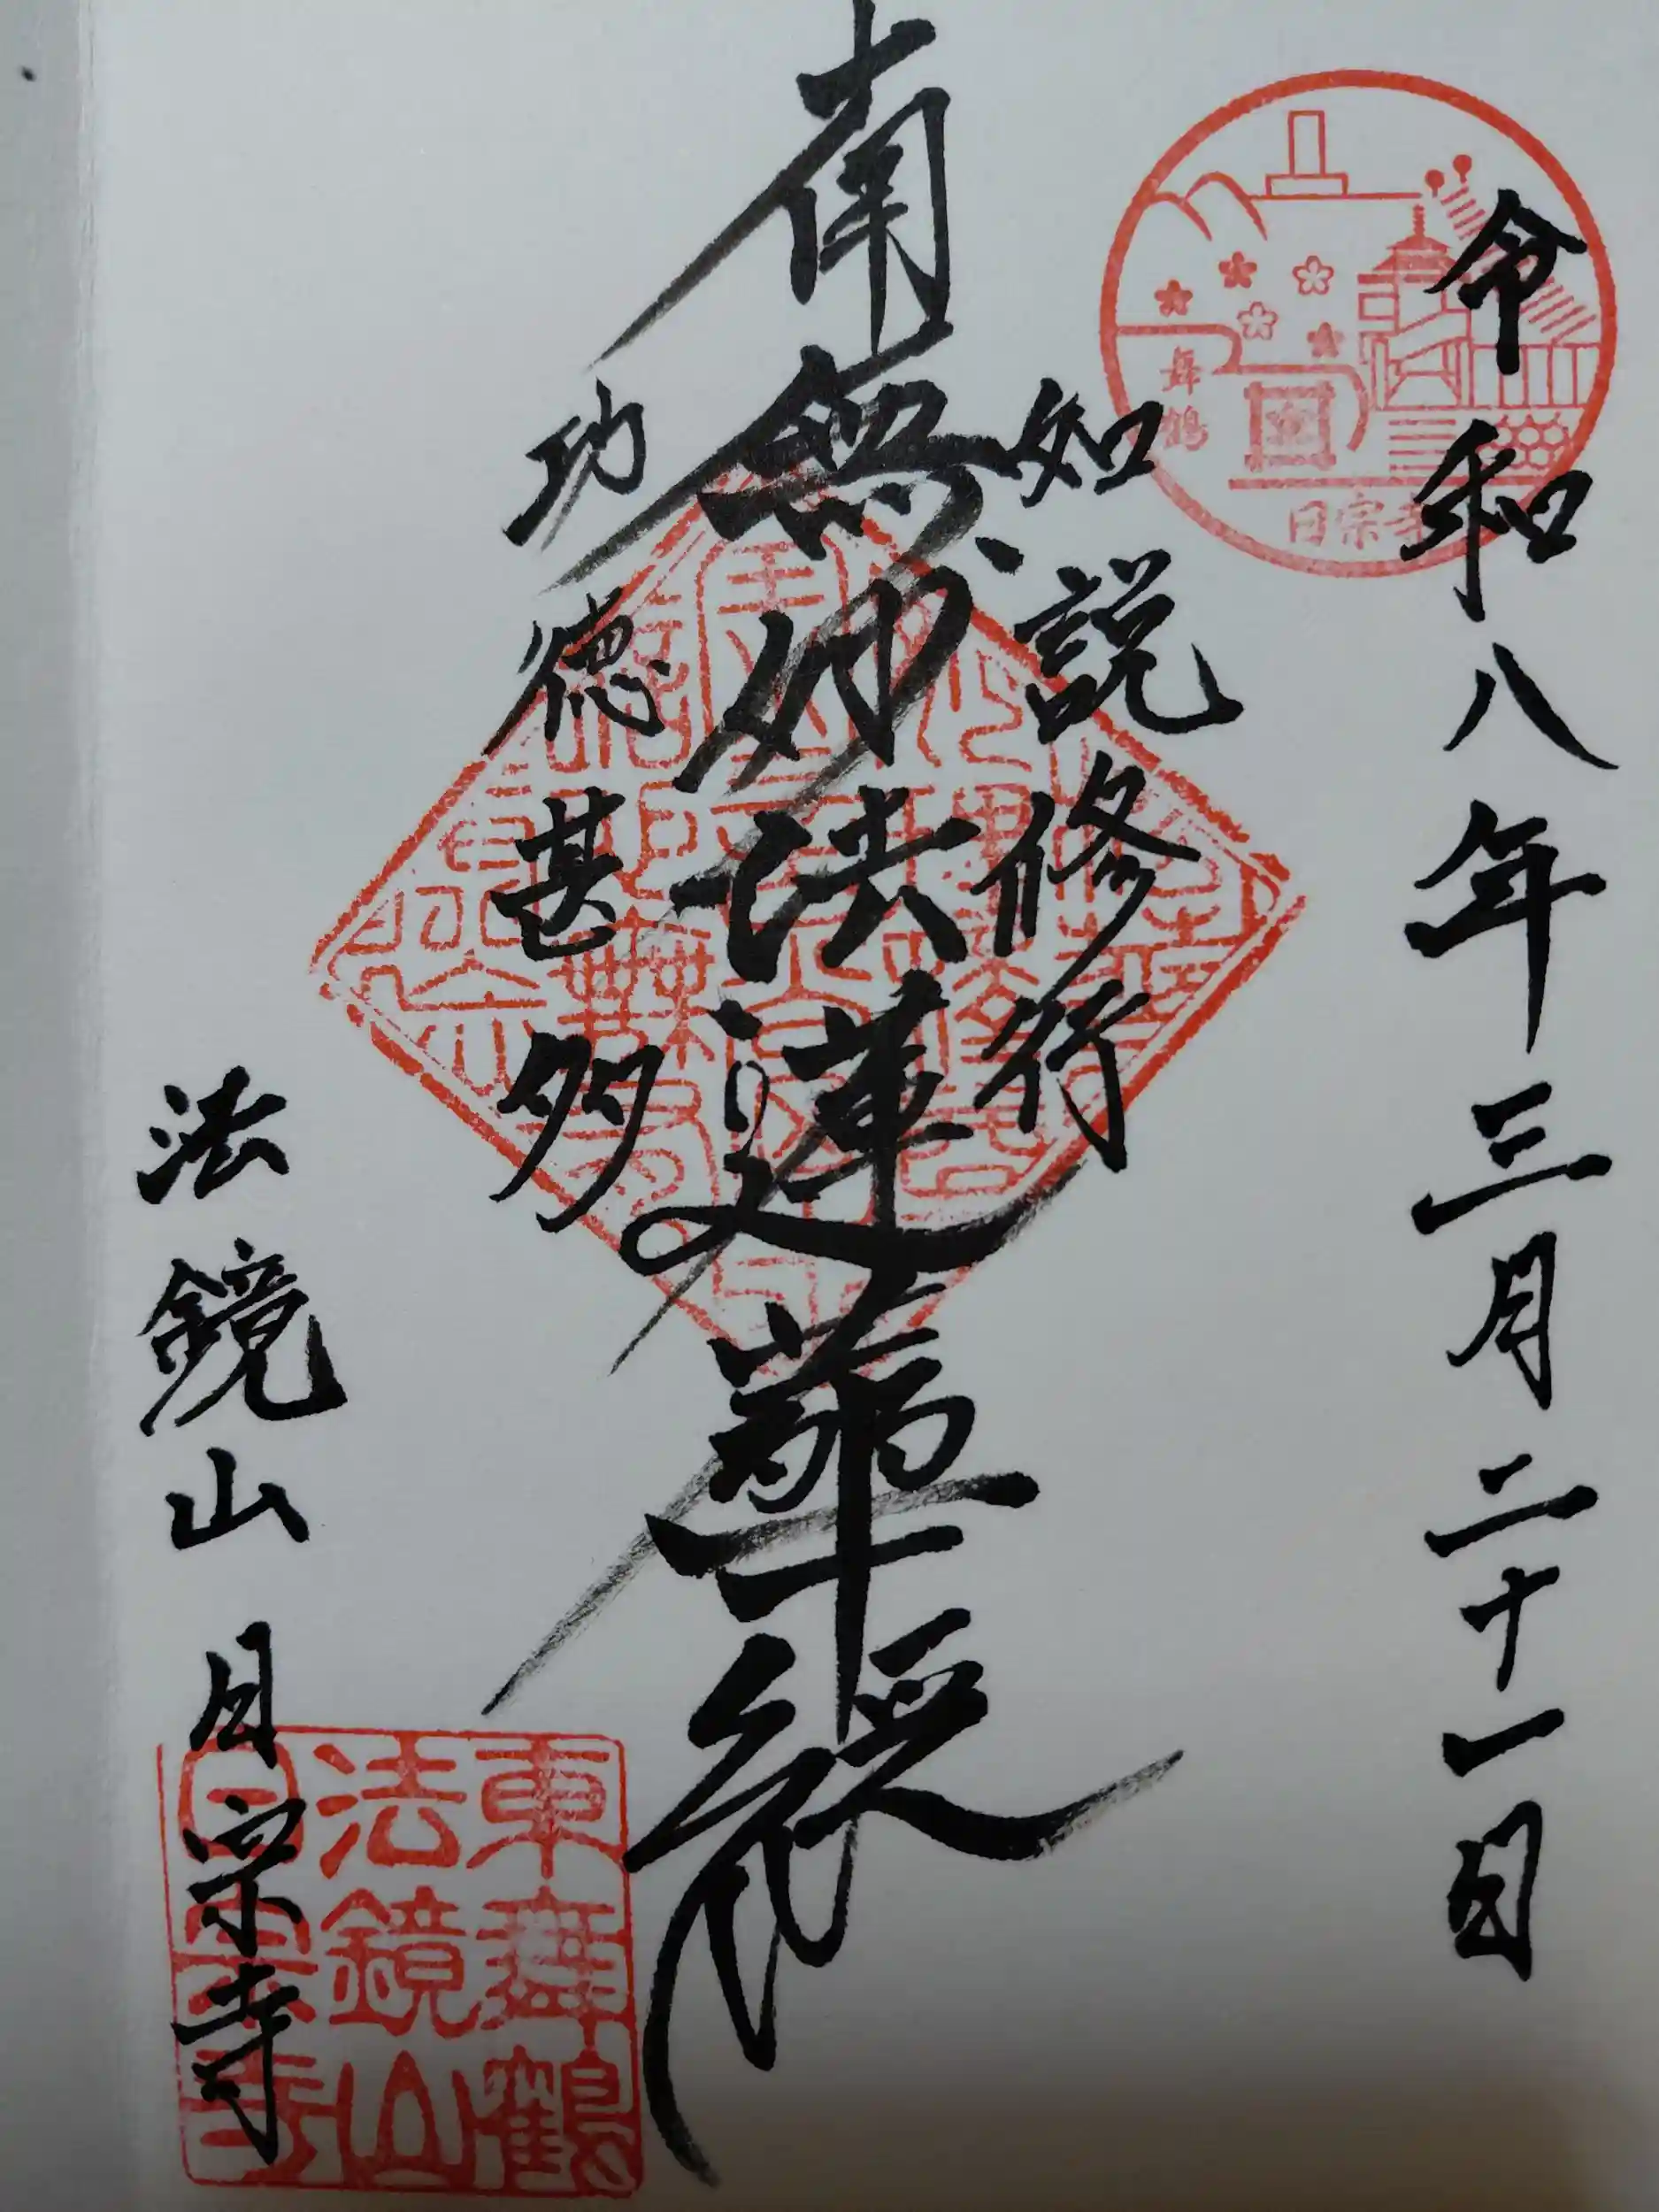 令和八年三月二十一日
如説修行
南無妙法蓮華経
功徳甚多
法鏡山 日宗寺
舞鶴
日宗寺
東舞鶴
法鏡山
日宗寺